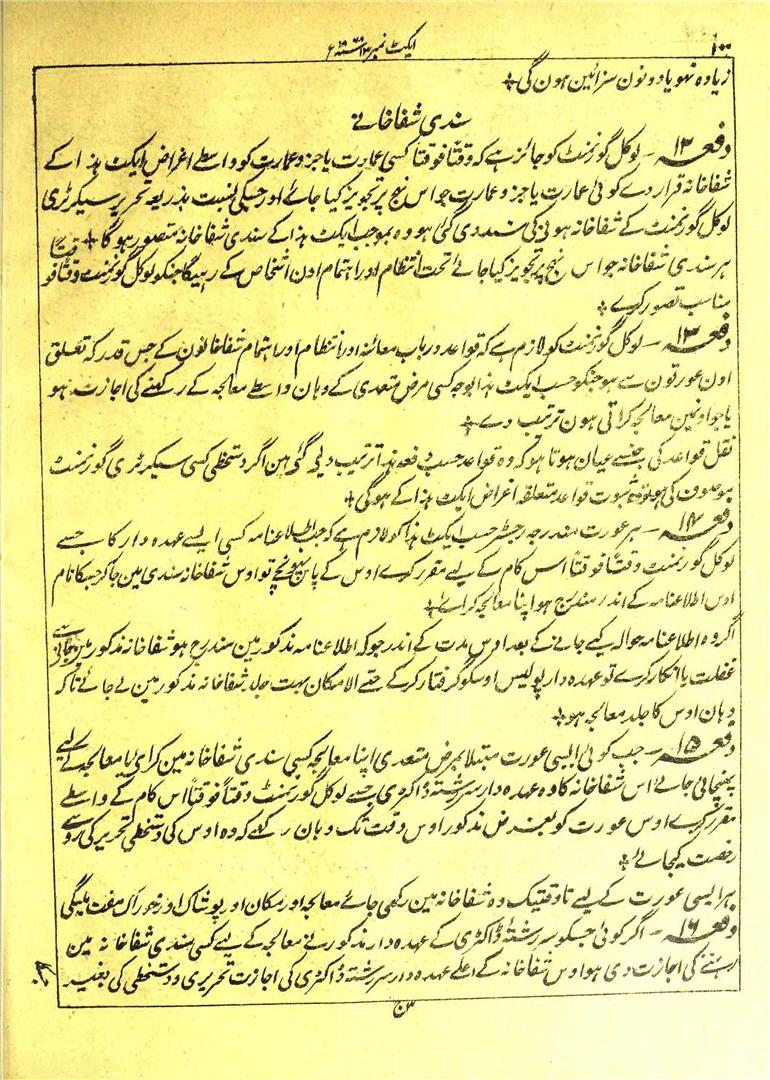 ۱۰۰
ایکٹ نمبر ۱۴ ۱۸۶۸ ع
زیادہ نہو یا دونون سزائین ہون گی
سندی شفاخانے
دفعہ ۱۲ ـ لوکل گورنمنٹ کو جائز ہے کہ وقتاً فوقتاً کسی عمارت یا جزو عمارت کو واسطے اغراض ایکٹ ہذا کے
شفاخانہ قرار دے کوئی عمارت یا جزو عمارت جو اس نہج پر تجویز کیا جائے اور جسکی نسبت بذریعہ تحریر سیکرٹری
لوکل گورنمنٹ کے شفاخانہ ہونے کی سند دی گئی ہو وہ بموجب ایکٹ ہذا کے سندی شفاخانہ متصور ہوگا
ہر سندی شفاخانہ جو اس نہج پر تجویز کیا جائے تحت انتظام اور اہتمام اون اشخاص کے رہیگا جنکو لوکل گورنمنٹ وقتاً فوقتاً
مناسب تصور کرے
دفعہ ۱۳ ـ لوکل گورنمنٹ کو لازم ہے کہ قواعد درباب معائنہ اور انتظام اور اہتمام شفاخانون کے جس قدر کہ تعلق
اون عورتون سے ہو جنکو حسب ایکٹ ہذا بوجہ کسی مرض متعدی کے وہان واسطے معالجہ کے رکھنے کی اجازت ہو
یا جو اونمین معالجہ کراتی ہون ترتیب دے
نقل قواعد کی جسے عیان ہوتا ہو کہ وہ قواعد حسب دفعہ ہذا ترتیب دیے گئے ہین اگر دستخطی کسی سیکرٹری گورنمنٹ
موصوف کی ہو تو وہ ثبوت قواعد متعلقہ اغراض ایکٹ ہذا کے ہوگی
دفعہ ۱۴ ـ ہر عورت مندرجہ رجسٹر حسب ایکٹ ہذا کو لازم ہے کہ جب اطلاعنامہ کسی ایسے عہدہ دار کا جسے
لوکل گورنمنٹ وقتاً فوقتاً اس کام کے لیے مقرر کرے اوس کے پاس پہونچے تو اوس شفاخانہ سندی مین جاکر جسکا نام
اوس اطلاعنامہ کے اندر مندرج ہو اپنا معالجہ کرائے
اگر وہ اطلاعنامہ حوالہ کیے جانے کے بعد اوس مدت کے اندر جو کہ اطلاعنامہ مذکور مین مندرج ہو شفاخانہ مذکور مین جانے سے
غفلت یا انکار کرے تو عہدہ دار پولیس اوسکو گرفتار کرکے حتے الامکان بہت جلد شفاخانہ مذکور مین لے جائے تاکہ
وہان اوس کا جلد معالجہ ہو
دفعہ ۱۵ ـ جب کوئی ایسی عورت مبتلا بمرض متعدی اپنا معالجہ کسی سندی شفاخانہ مین کرائے یا معالجہ کے لیے
پہنچائی جائے اس شفاخانہ کا وہ عہدہ دار سررشتہ ڈاکٹری جسے لوکل گورنمنٹ وقتاً فوقتاً اس کام کے واسطے
مقرر کرے اوس عورت کو بغرض مذکور اوس وقت تک وہان رکھے کہ وہ اوس کی دستخطی تحریر کی رو سے
رخصت کیجائے
ہر ایسی عورت کے لیے تا وقتیکہ وہ شفاخانہ مین رکھی جائے معالجہ اور مکان اور پوشاک اور خوراک مفت ملیگی
دفعہ ۱۶ ـ اگر کوئی جسکو سررشتہ ڈاکٹری کے عہدہ دار مذکور نے معالجہ کے لیے کسی سندی شفاخانہ مین
رہنے کی اجازت دی ہو اوس شفاخانہ کے اعلے عہدہ دار سررشتہ ڈاکٹری کی اجازت تحریری و دستخطی کی بغیر